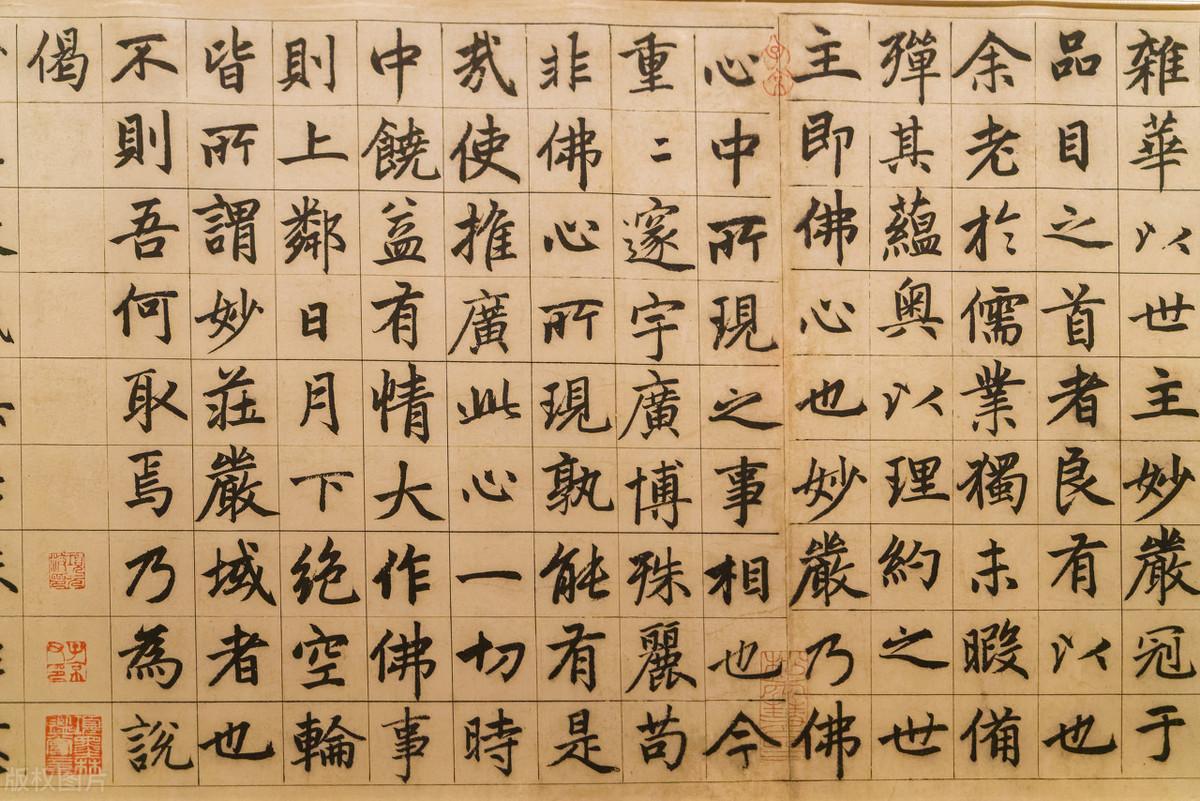 雜華以世主妙嚴冠于
品目之首者良有以也
余老於儒業獨未暇備
彈其蘊奧以理約之世
主即佛心也妙嚴乃佛
心中所現之事相也今
重二邃宇廣博殊麗苟
非佛心所現孰能有是
哉使推廣此心一切時
中饒益有情大作佛事
則上鄰日月下絕空輪
皆所謂妙莊嚴域者也
不則吾何取焉乃為說
偈
版权图片